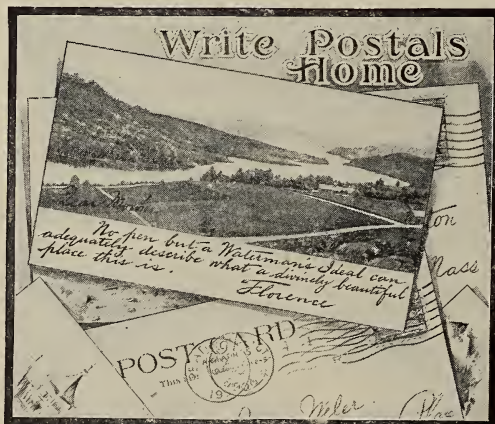 Write Postals
Home
No pen but a Waterman's Ideal can
adequately describe what a divinely beautiful
place this is.
Florence
on
Mass
POST CARD
This
19